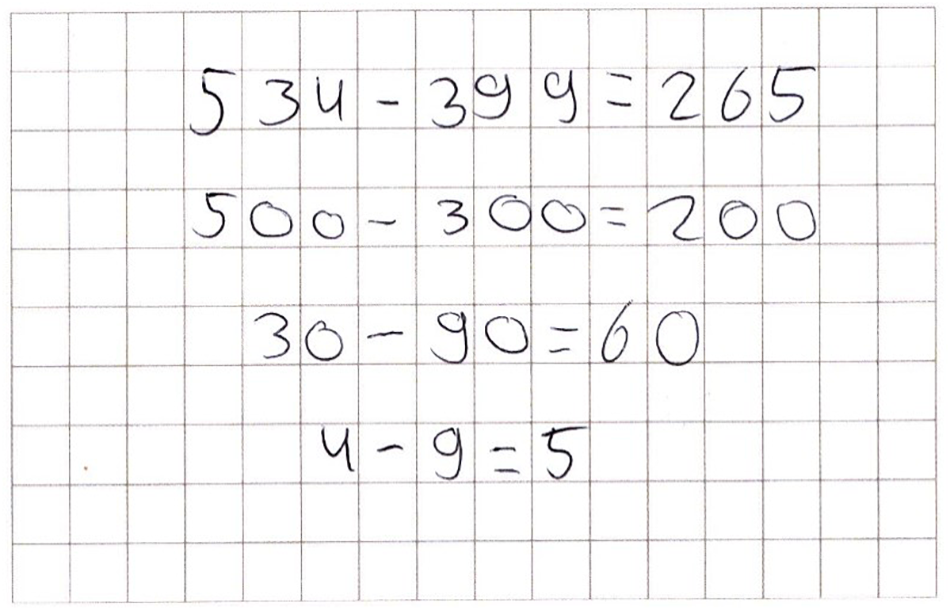 534 - 399 = 265
500 - 300 = 200
30 - 90 = 60
4 - 9 = 5